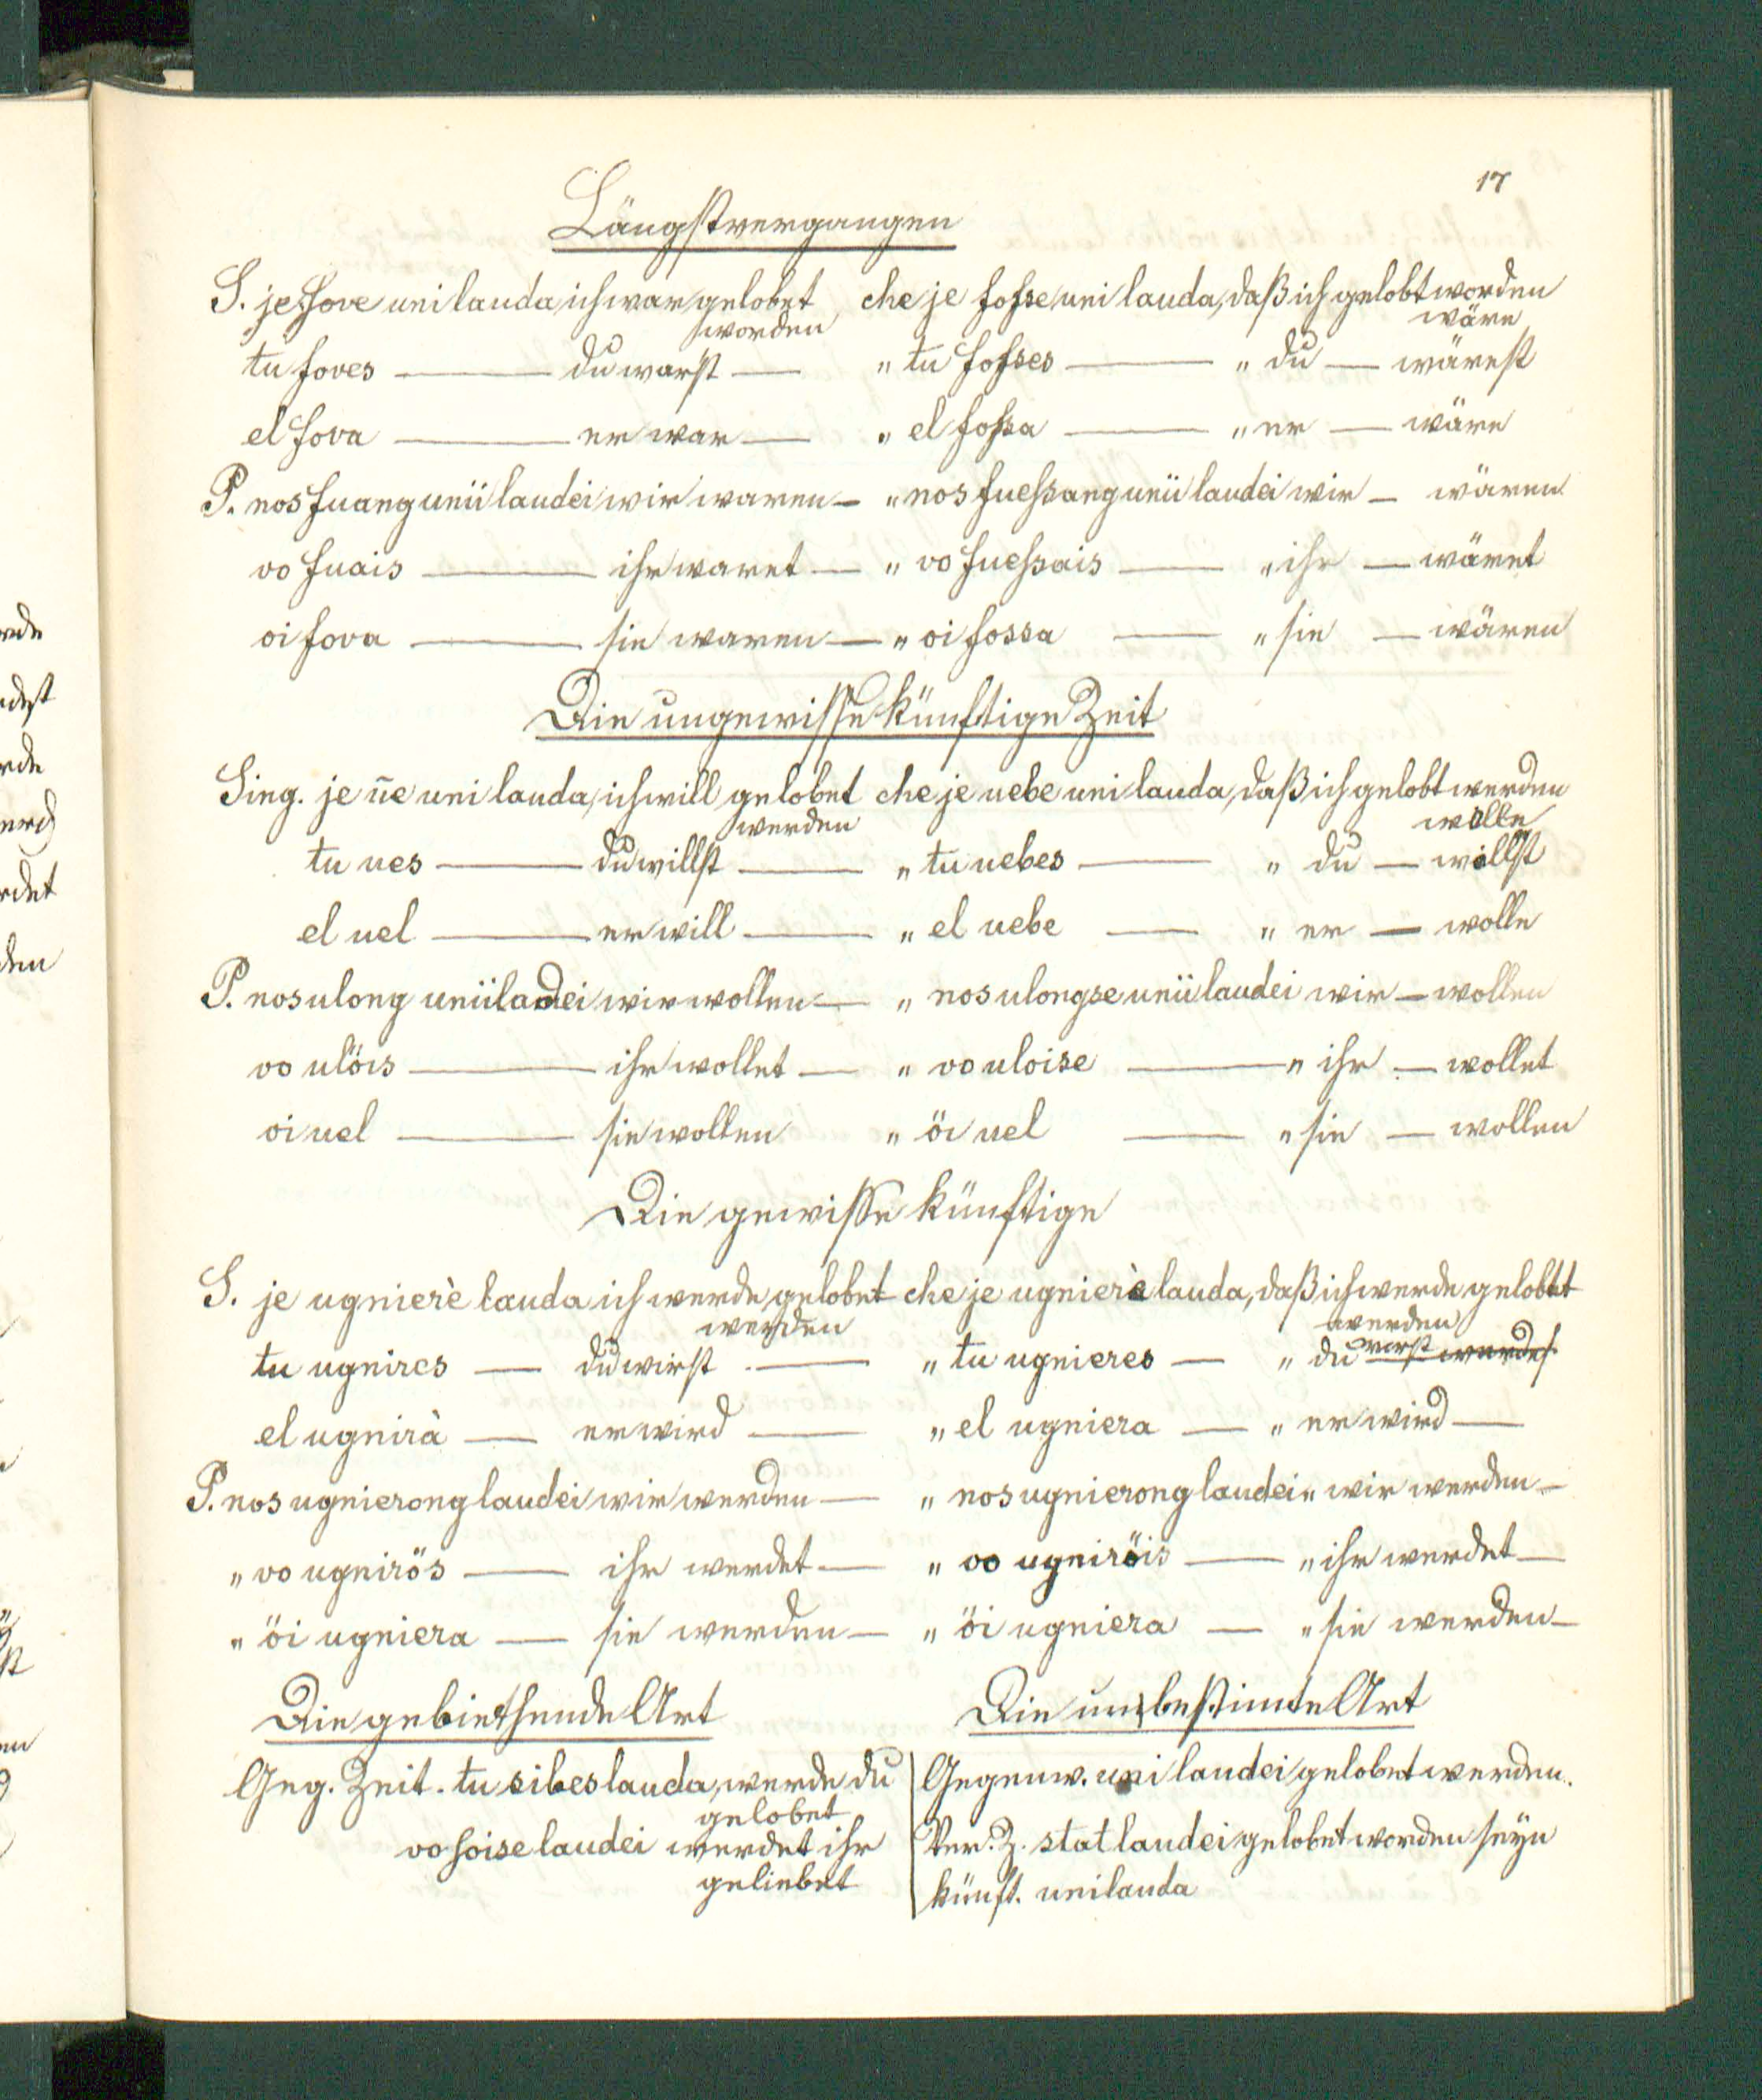 17
Längstvergangen
S. je fove uni lauda, ich war gelobet che je fosse uni lauda, daß ich gelobt worden
worden wäre
tu foves — du warst — " tu fosses — " du — wärest
el fova — er war — " el fossa — " er — wäre
P. nos fuang unii laudei wir waren — " nos fuessang unii laudei wir — wären
vo fuais — ihr waret — " vo fuessais — " ihr — wäret
oi fova — sie waren — " oi fossa — " sie — wären
Die ungewisse künftige Zeit
Sing. je ūe uni lauda, ich will gelobet che je uebe uni lauda, daß ich gelobt werden
werden wolle
tu ues — du willst — " tu uebes — " du — willst
el uel — er will — " el uebe — " er — wolle
P. nos ulong unii laudei wir wollen — " nos ulongse unii laudei wir — wollen
vo ulöis — ihr wollet — " vo uloise — " ihr — wollet
oi uel — sie wollen " öi uel — " sie — wollen
Die gewisse künftige
S. je ugnierè lauda ich werde gelobet che je ugnierè lauda, daß ich werde gelobt
werden werden
tu ugnires — du wirst — " tu ugnieres — " du wirst werdest
el ugnirà — er wird — " el ugniera — " er wird —
P. nos ugnierong laudei wir werden — " nos ugnierong laudei " wir werden —
" vo ugnirös — ihr werdet — " vo ugniröis — " ihr werdet —
" öi ugniera — sie werden — " öi ugniera — " sie werden —
Die gebiethende Art Die unbestimte Art
Geg. Zeit. tu sibes lauda, werde du
gelobet
vo soise laudei werdet ihr
geliebet
Gegenw. uni laudei gelobet werden.
Ver. Z. stat laudei gelobet worden seyn
künft. uni lauda